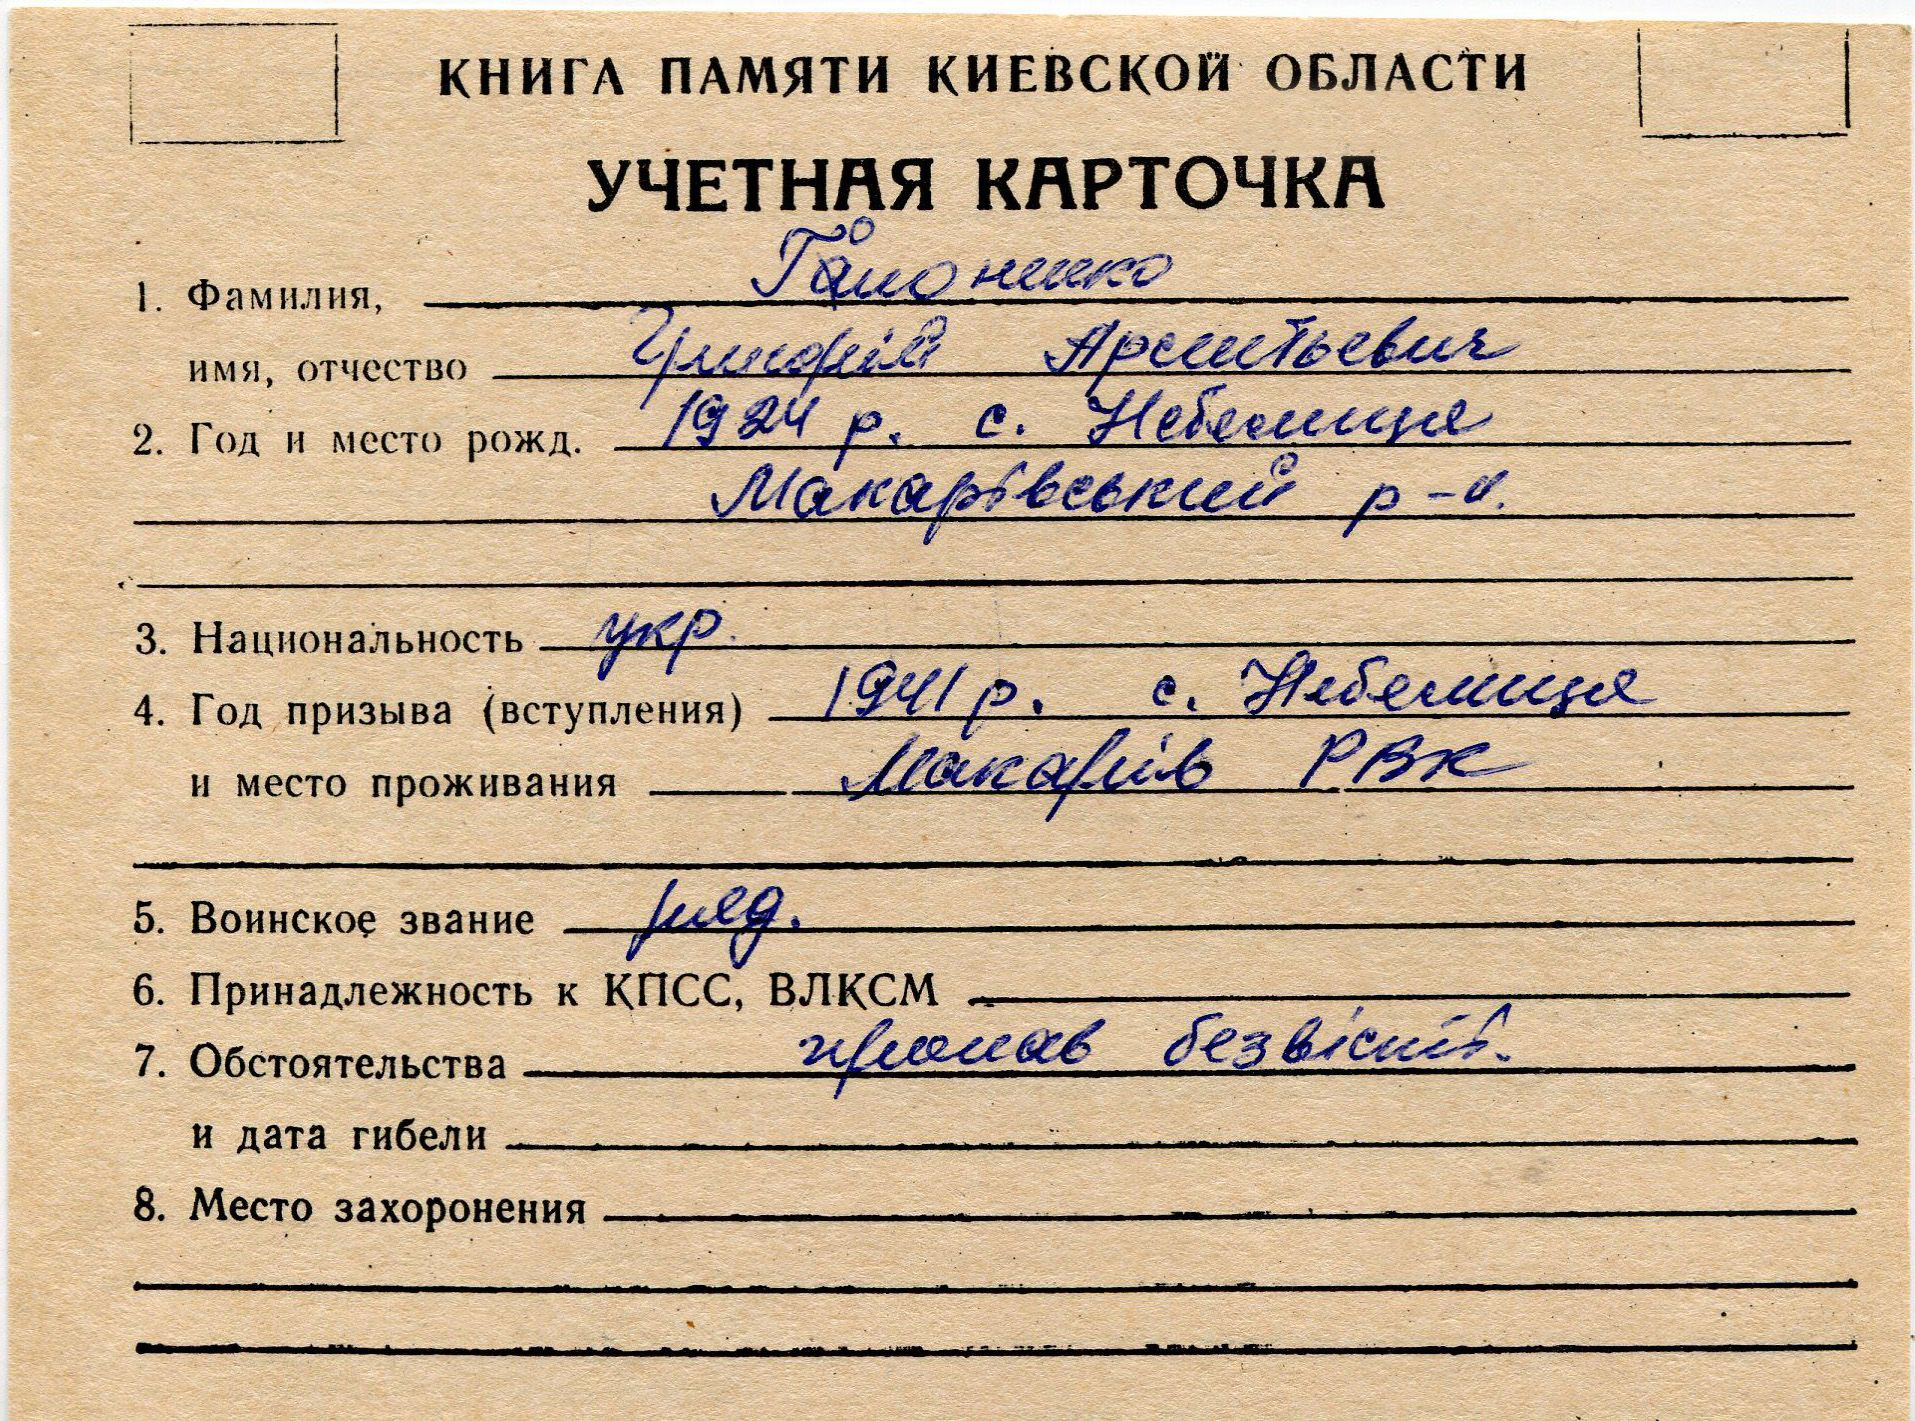 КНИГА ПАМЯТИ КИЕВСКОЙ ОБЛАСТИ
УЧЕТНАЯ КАРТОЧКА
1. Фамилия,
имя, отчество Григорій Арсентьевич
2. Год и место рожд. 1924 р. с. Небелиця
Макарівський р-н.
3. Национальность укр.
4. Год призыва (вступления) 1941 р. с. Небелиця
и место проживания Макарів РВК
5. Воинское звание ряд.
6. Принадлежность к КПСС, ВЛКСМ
7. Обстоятельства пропав безвісті.
и дата гибели
8. Место захоронения